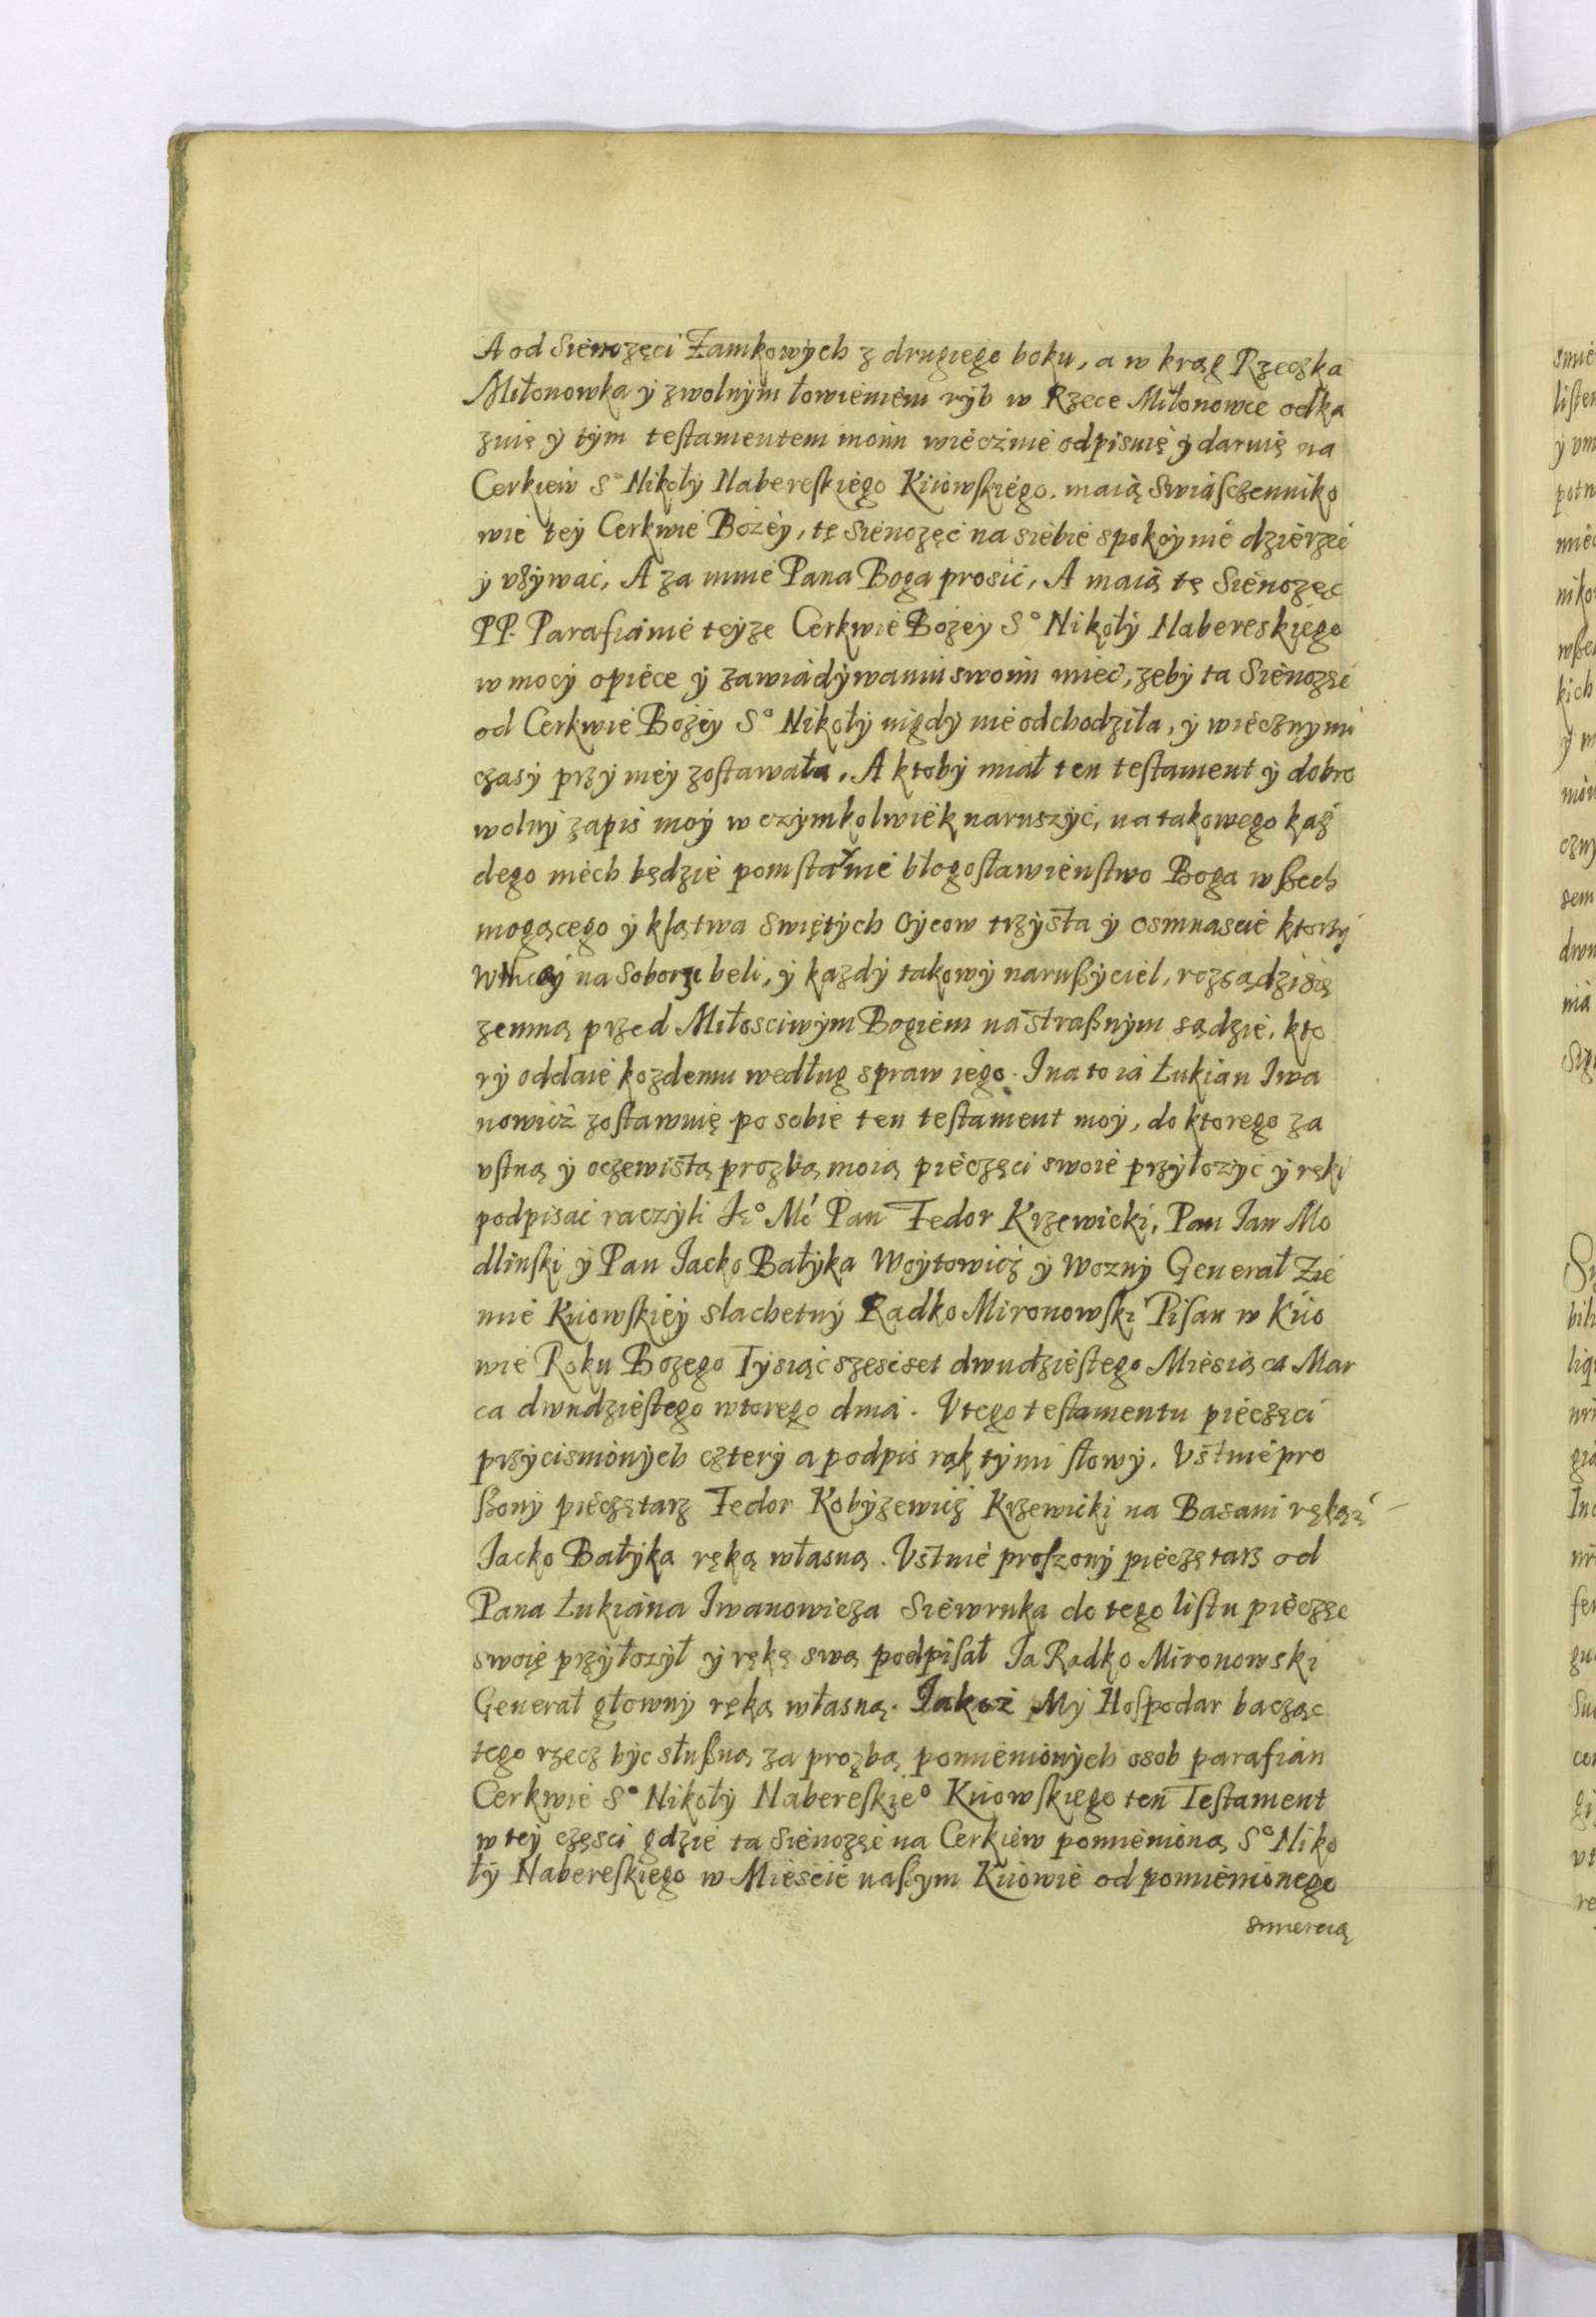 A od Sienozęci Zamkowych z drugiego boku, a w krąg Rzeczka
Miłonowka ý zwolnym łowieniem ryb w Rzece Miłonowce odka
zuię ý tym testamentem moim wiecznie odpisuię ý daruię na
Cerkiew S° Nikoły Nabereskiego Kiiowskiego. maią Swiasczenniko
wie tey Cerkwie Bożey, tę Sienozęć na siebie spokoynie dzierzeć
ý vżywać, A za mnie Pana Boga prosić, A maią tę Sienozęć
PP. Parafianie teyze Cerkwie Bozey S° Nikoły Nabereskiego
w mocy opiece ý zawiadywaniu swoim mieć, zeby ta Sienozęć
od Cerkwie Bozey S° Nikoły nigdy nie odchodziła, ý wiecznymi
czasy przy niey zostawała, A ktoby miał ten testament ý dobro
wolny zapis moy w czymkolwiek naruszyć, na takowego kaz
dego niech będzie pomsta nie błogosławienstwo Boga wszech
mogącego ý klątwa Swiętych Oycow trzysta ý osmnascie ktorzy
w Nicey na Soborze beli, ý kazdy takowy naruszyciel, rozsądzi się
zemną przed Miłosciwym Bogiem na strasznym sądzie, kto
ry oddaie kozdemu według spraw iego. Ina to ia Łukian Iwa
nowicz zostawuię po sobie ten testament moy, do ktorego za
vstną ý oczewistą prozbą moią pieczęci swoie przyłozyć ý ręki
podpisać raczyli Ię° Mć Pan Fedor Krzewicki, Pan Jan Mo
dlinski ý Pan Jacko Bałyka Woytowicz ý Wozny Generał Zie
mie Kiiowskiey slachetny Radko Mironowski Pisan w Kiio
wie Roku Bozego Tysiąc szescset dwudziestego Miesiąca Mar
ca dwudziestego wtorego dnia. V tego testamentu pieczęci
przycisnionych cztery a podpis rąk tymi słowy. Vstnie pro
szony pieczętarz Fedor Kobyzewicz Krzewicki na Basani ręką
Jacko Bałyka ręką własną. Vstnie proszony pieczętarz od
Pana Łukiana Iwanowicza Siewruka do tego listu pieczęć
swoię przyłozył ý rękę swą podpisał Ia Radko Mironowski
Generał głowny ręką własną. Iakoż My Hospodar bacząc
tego rzecz być słuszną za prozbą pomienionych osob parafian
Cerkwie S° Nikoły Nabereskie° Kiiowskiego ten Testament
w tey częsci gdzie ta Sienozęć na Cerkiew pomienioną S° Niko
ły Nabereskiego w Miescie naszym Kiiowie od pomienionego
smiercią